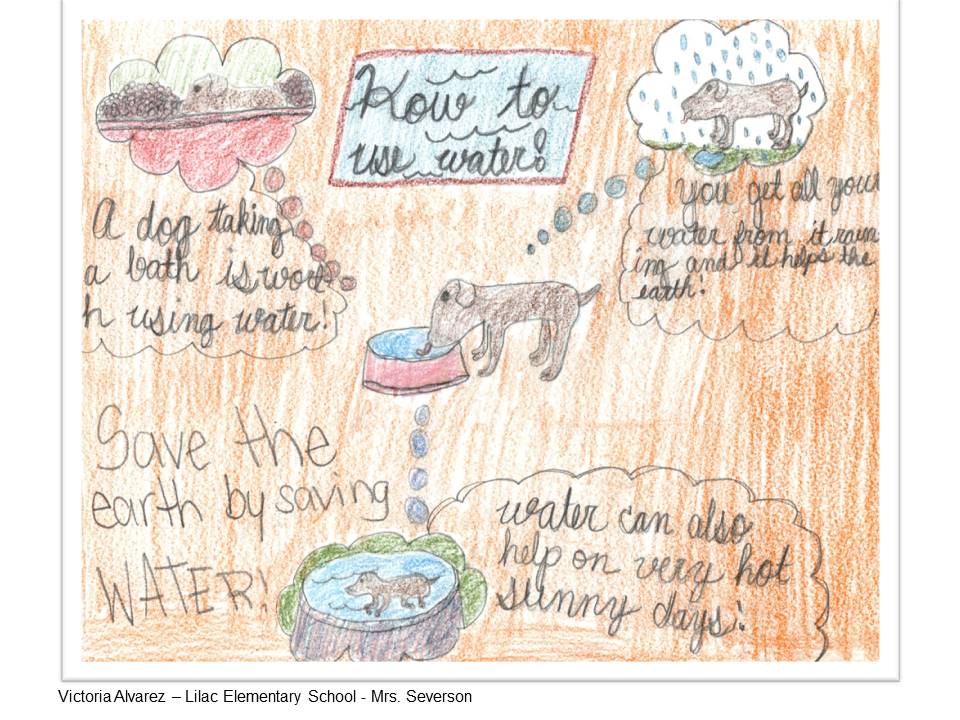 How to
use water!
A dog taking
a bath is wort
h using water!
You get all your
water from it rain
ing and it helps the
earth!
Save the
earth by saving
WATER!
water can also
help on very hot
sunny days!
Victoria Alvarez – Lilac Elementary School - Mrs. Severson